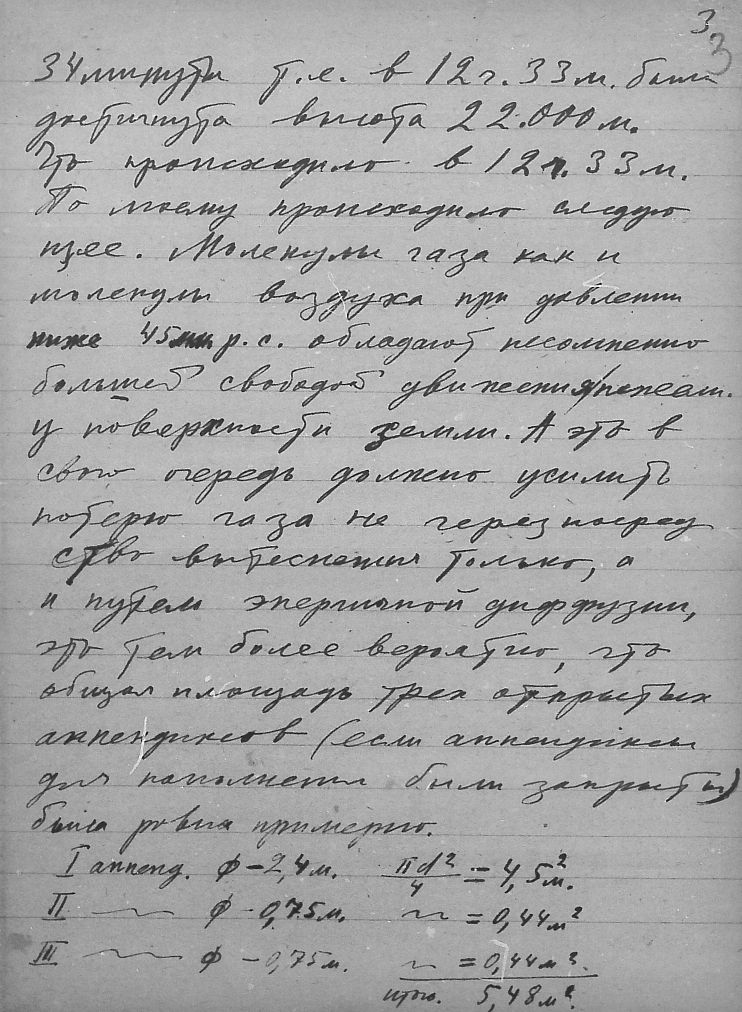 3
3
34 минуты т.е. в 12 ч. 33 м. была
достигнута высота 22.000 м.
Что происходило в 12 ч. 33 м.
По моему происходило следую
щее. Молекулы газа как и
молекулы воздуха при давлении
ниже 45 мм р.с. обладают несомненно
большей свободой движения нежели
у поверхности земли. А это в
свою очередь должно усилить
потерю газа не через посред
ство вытеснения только, а
и путем энергичной диффузии,
это тем более вероятно, что
общая площадь трех открытых
аппендиксов (если аппендиксы
для наполнения были закрыты)
была ровна примерно.
I аппенд. ф – 2,4 м. πd²/4 = 4,5 м².
II — ф - 0,75 м. ~ = 0,44 м²
III — ф – 0,75 м. ~ = 0,44 м².
итого. 5,48 м².